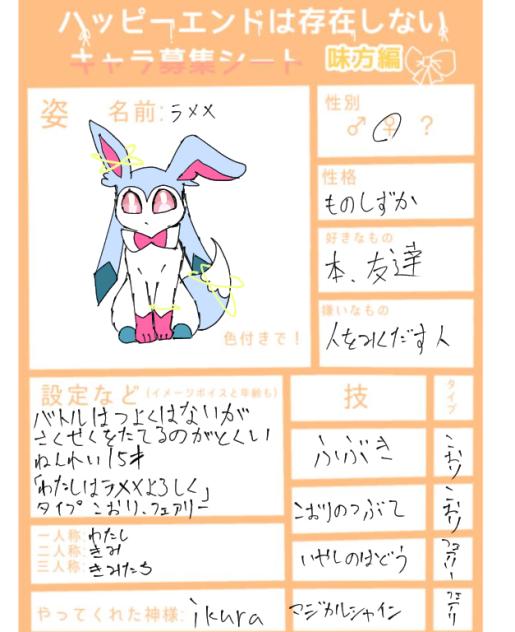 ハッピーエンドは存在しない
キャラ募集シート 味方編
姿 名前:ラメメ
色付きで！
性別
♂ ♀ ?
性格
ものしずか
好きなもの
本、友達
嫌いなもの
人をみくだす人
設定など(イメージボイスと年齢も)
バトルはつよくはないが
さくせくをたてるのがとくい
ねんれい15才
「わたしはラメメよろしく」
タイプ こおり、フェアリー
一人称:わたし
二人称:きみ
三人称:きみたち
やってくれた神様:ikura
技 タイプ
ふぶき こおり
こおりのつぶて こおり
いやしのはどう フェアリー
マジカルシャイン フェアリ